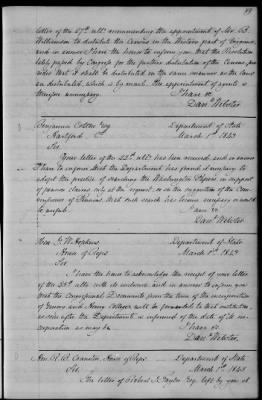 letter of the 27th ult. recommending the appointment of Mr. Wm.
Williamson to distribute the Census in the Western part of Virginia,
and in answer I have the honor to inform you that the Resolution
lately passed by Congress for the further distribution of the Census, pro-
vides that it shall be distributed in the same manner as the laws
are distributed, which is by mail. The appointment of agents is
therefore unnecessary.
I have &c
Danl Webster
Benjamin Esq
Department of State
Hartford
March 1st 1843
Sir
Your letter of the 22d ult. has been received, and in answer
I have to inform that the Department has found it necessary to
adopt the practice of searching the Washington in support
of pension claims only at the request or on the requisition of the Com-
missioner of Pensions. Without such search has become necessary or would
be
I am &c
Danl Webster
Hon. G. W. Hopkins,
Department of State
House of Reps
March 1st 1843
Sir
I have the honor to acknowledge the receipt of your letter
of the 28th with its enclosure and in answer to inform you
that the Congressional Documents from the time of the incorporation
of Emory and Henry College will be forwarded to that institution
as soon after the Department is informed of the date of its in-
corporation as may be.
I have &c
Danl Webster
Hon. R. B. Cranston, House of Reps.
Department of State
Sir,
March 1st 1843
The letter of Robert Taylor Esq left by you at